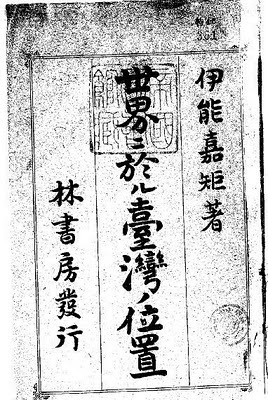 伊能嘉矩著
世界ニ於ル臺灣ノ位置
林書房發行